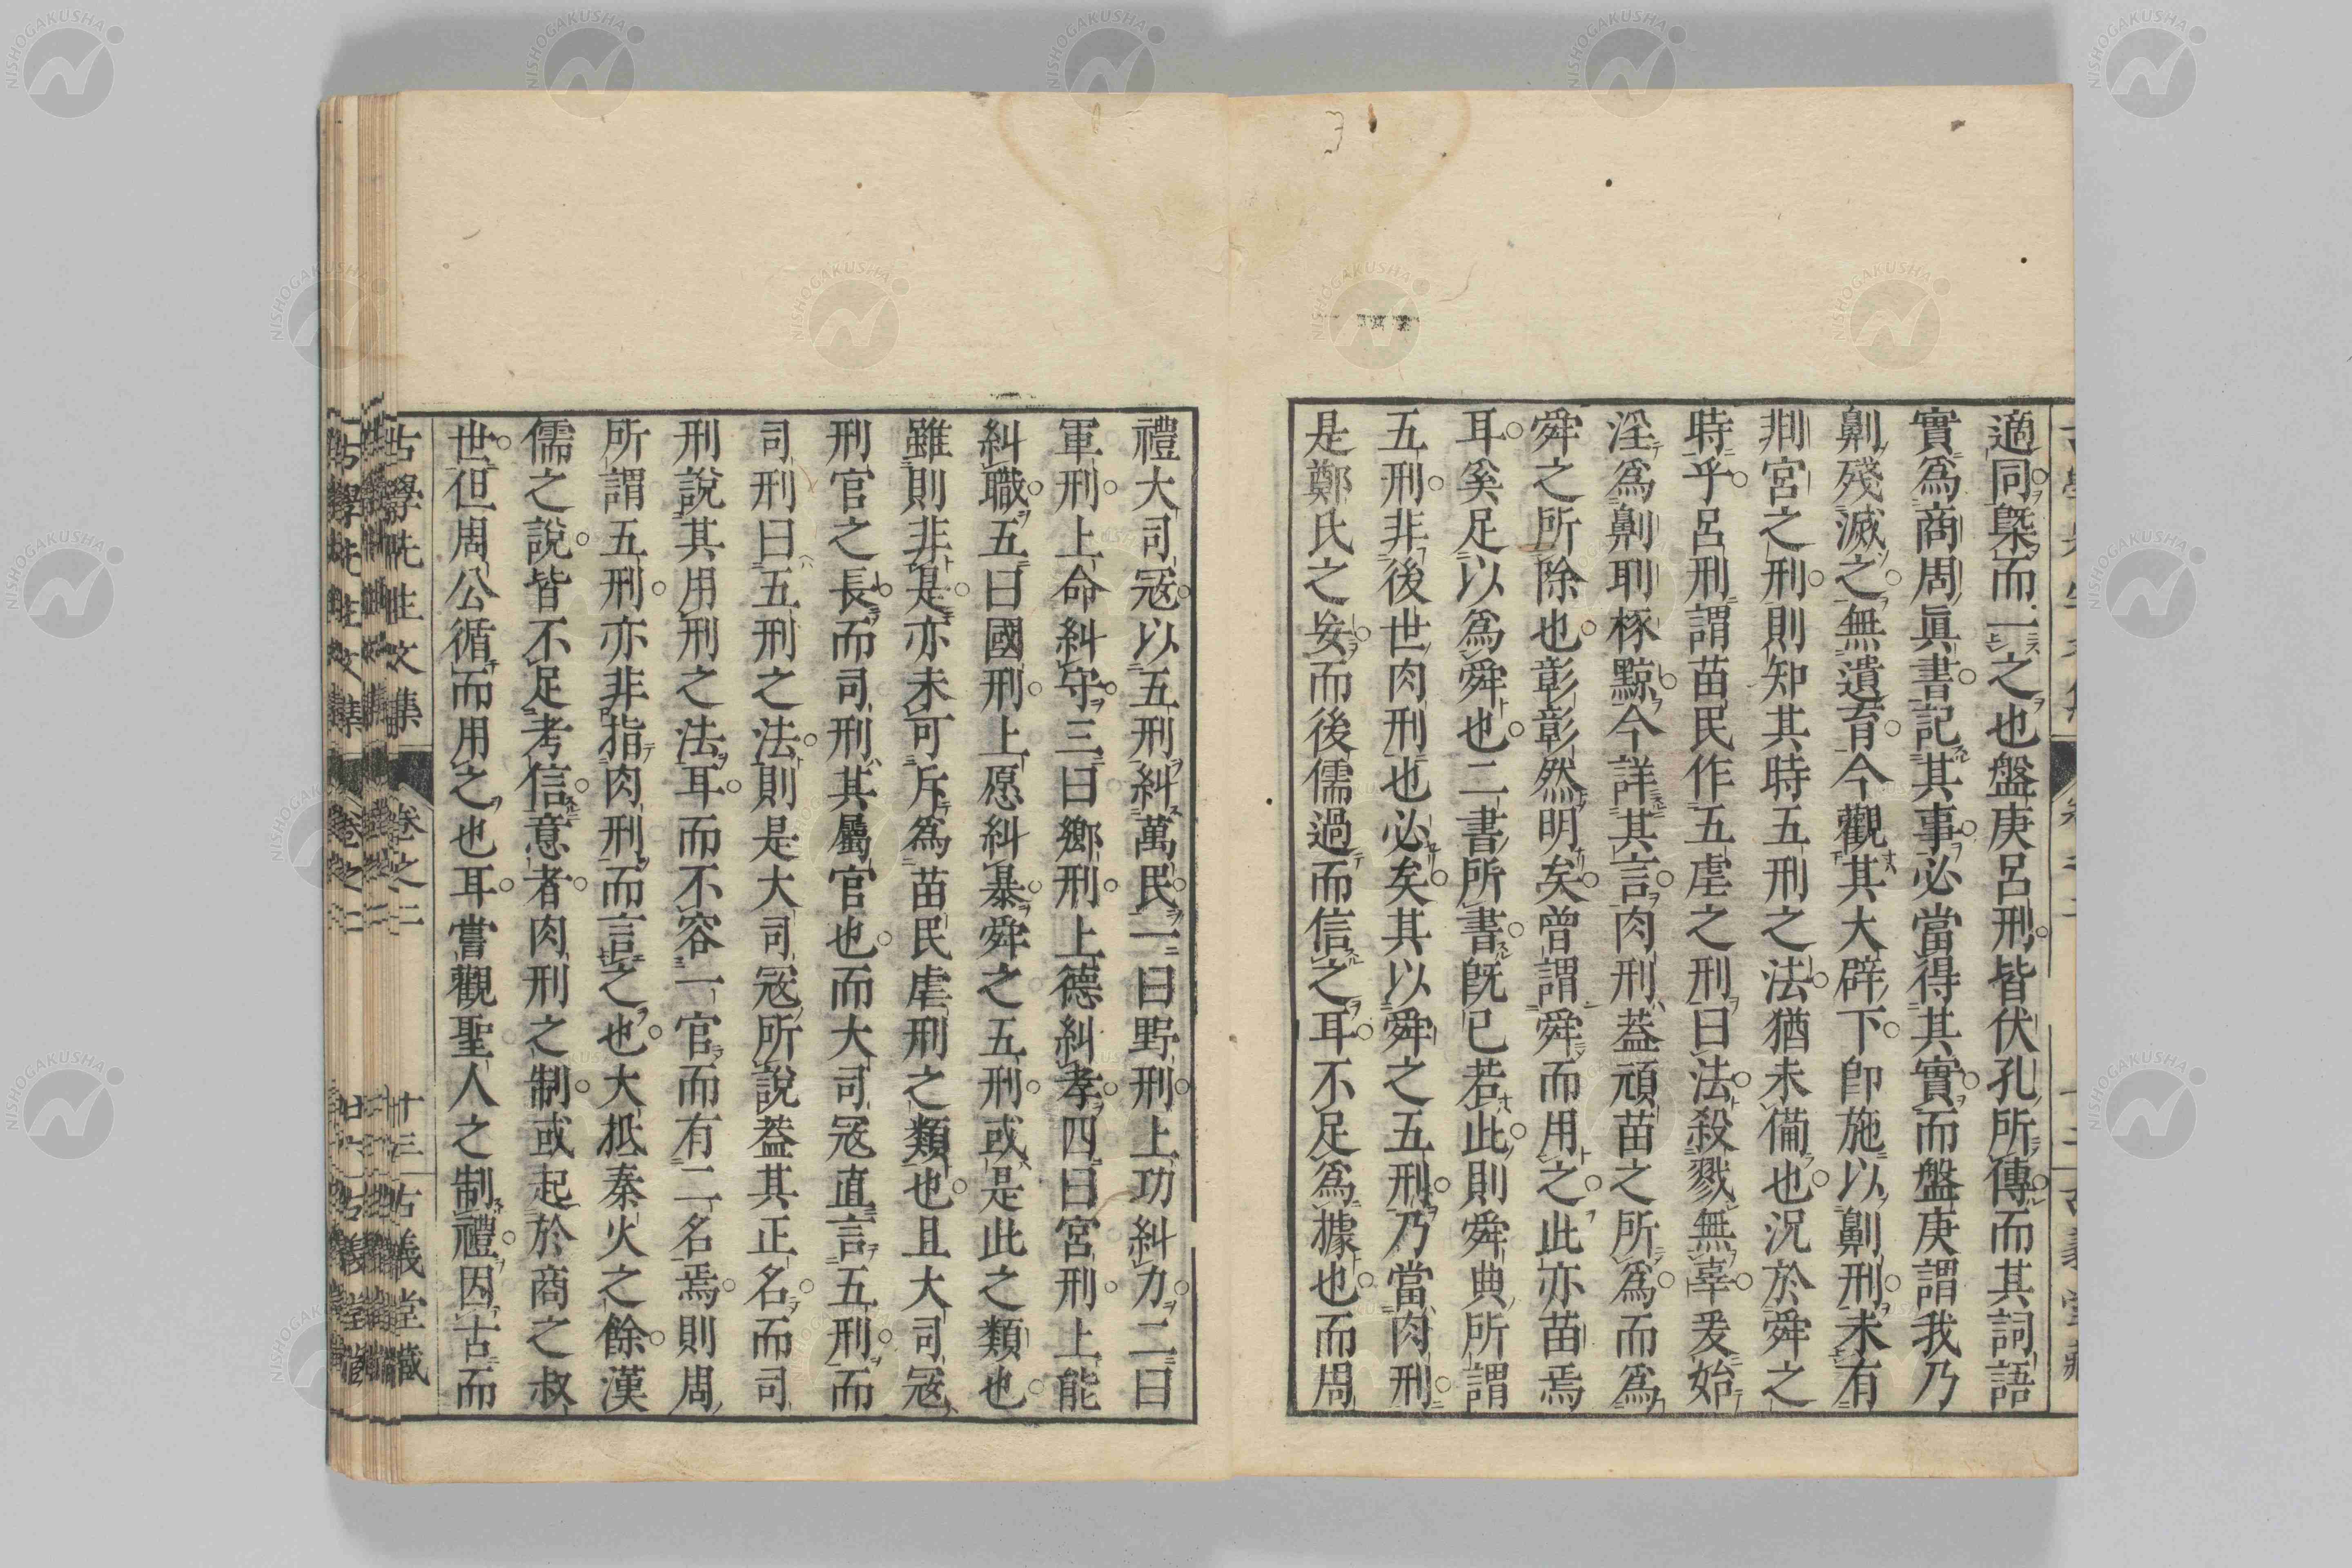 適同槩而一之也盤庚呂刑皆伏孔所傳而其詞語
實爲商周眞書記其事必當得其實而盤庚謂我乃
劓殄滅之無遺育今觀其大辟下卽施以劓刑未有
剕宮之刑則知其時五刑之法猶未備也況於舜之
時乎呂刑謂苗民作五虐之刑曰法殺戮無辜爰始
淫爲劓刵椓黥今詳其言肉刑蓋頑苗之所爲而爲
舜之所除也彰彰然明矣曾謂舜而用之此亦苗焉
耳奚足以爲舜也二書所書旣已若此則舜典所謂
五刑非後世肉刑也必矣其以舜之五刑乃當肉刑
是鄭氏之妄而後儒過而信之耳不足爲據也而周
禮大司冦以五刑糾萬民一曰野刑上功糾力二曰
軍刑上命糾守三曰鄉刑上德糾孝四曰宮刑上能
糾職五曰國刑上愿糾暴舜之五刑或是此之類也
雖則非是亦未可斥爲苗民虐刑之類也且大司冦
刑官之長而司刑其屬官也而大司冦直言五刑而
司刑曰五刑之法則是大司冦所說蓋其正名而司
刑說其用刑之法耳而不容一官而有二名焉則周
所謂五刑亦非指肉刑而言之也大抵秦火之餘漢
儒之說皆不足考信意者肉刑之制或起於商之叔
世但周公循而用之也耳嘗觀聖人之制禮因古而
古學先生文集 卷之二 十三 古義堂藏